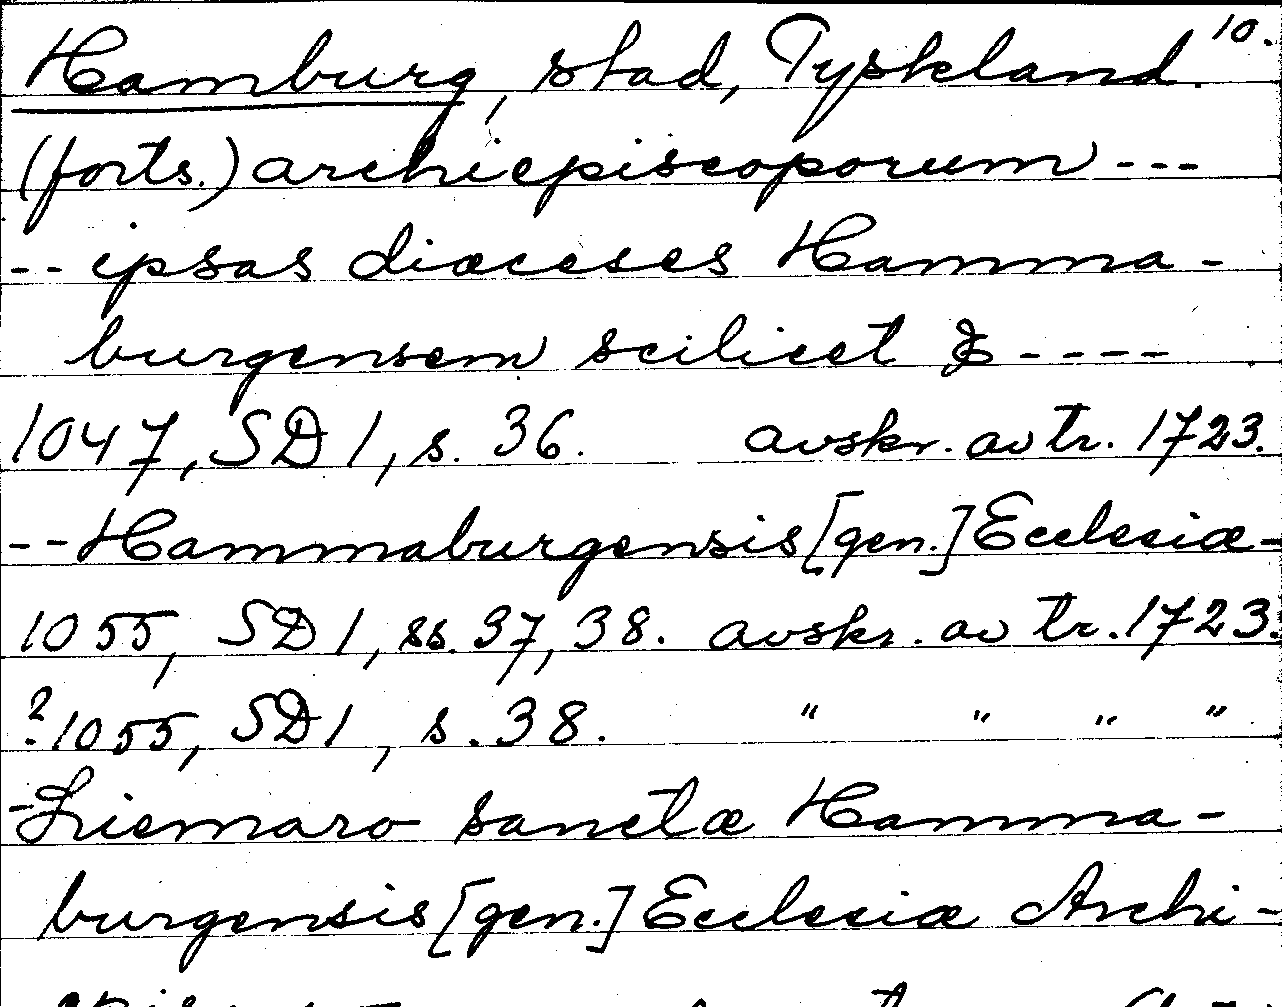 10.
Hamburg, stad, Tyskland.
(forts.) archiepiscoporum ---
-- ipsas diœceses Hamma-
burgensem scilicet & ----
1047, SD 1, s. 36. avskr. av tr. 1723.
-- Hammaburgensis [gen.] Ecclesiæ -
1055, SD 1, ss. 37, 38. avskr. av tr. 1723.
? 1055, SD 1, s. 38. " " " "
- Liemaro sanctæ Hamma-
burgensis [gen.] Ecclesiæ Archi-